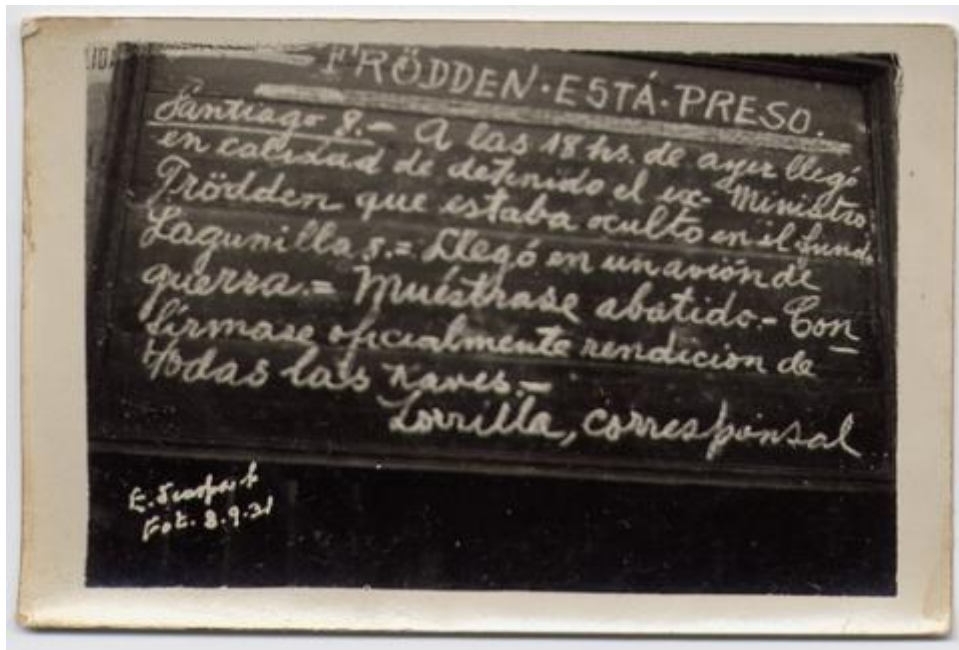 FRÖDDEN·ESTÁ·PRESO.
Santiago 8.- A las 18 hs. de ayer llegó
en calidad de detenido el ex- Ministro
Frödden que estaba oculto en el fundo
Lagunillas.= Llegó en un avión de
guerra.= Muéstrase abatido.- Con
fírmase oficialmente rendicion de
todas las naves.-
Zorrilla, corresponsal
Fot. 8.9.31